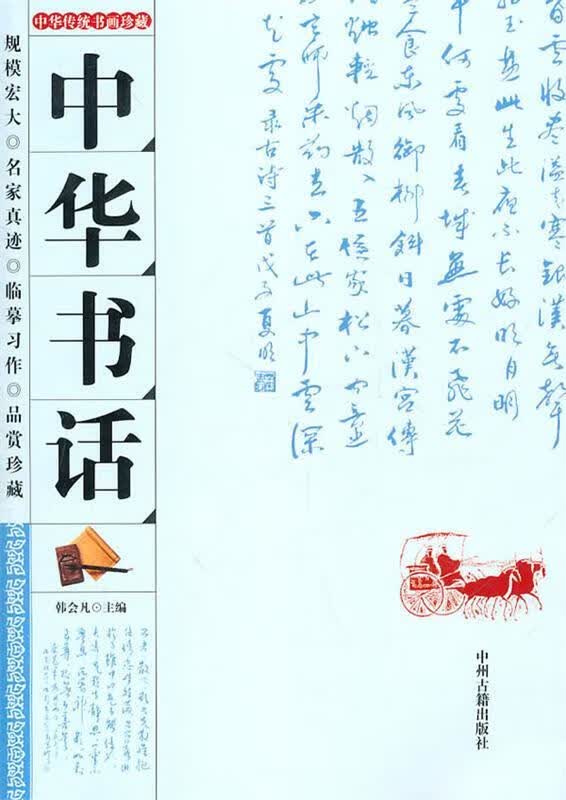 中华传统书画珍藏
中华书话
规模宏大◎名家真迹◎临摹习作◎品赏珍藏
韩会凡⊙主编
暮雲收尽溢清寒銀漢無聲
转玉盘此生此夜不长好明月明
年何處看春城無處不飛花
寒食东风御柳斜日暮漢宫傳
蜡燭輕烟散入五侯家松下问童
子言师采药去只在此山中雲深
不知處 录古诗三首戊子夏明
中州古籍出版社